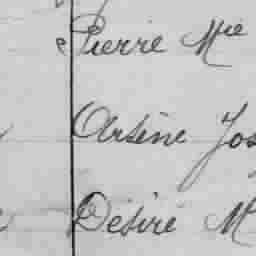 Pierre Mie
Arsène Jos
Désiré M